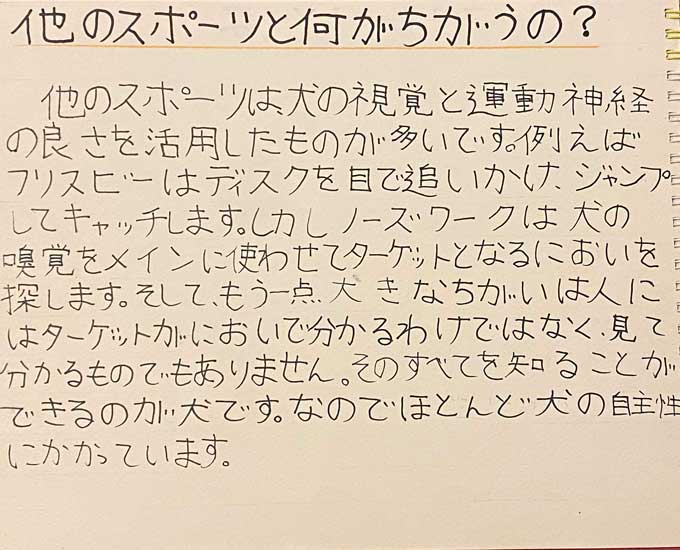 他のスポーツと何がちがうの？
他のスポーツは、犬の視覚と運動神経
の良さを活用したものが多いです。例えば
フリスビーはディスクを目で追いかけ、ジャンプ
してキャッチします。しかしノーズワークは犬の
嗅覚をメインに使わせてターゲットとなるにおいを
探します。そして、もう一点大きなちがいは人に
はターゲットがにおいで分かるわけではなく、見て
分かるものでもありません。そのすべてを知ることが
できるのが犬です。なのでほとんど犬の自主性
にかかっています。